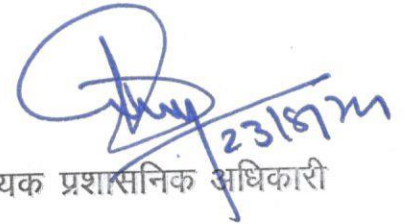 23/8/24
यक प्रशासनिक अधिकारी